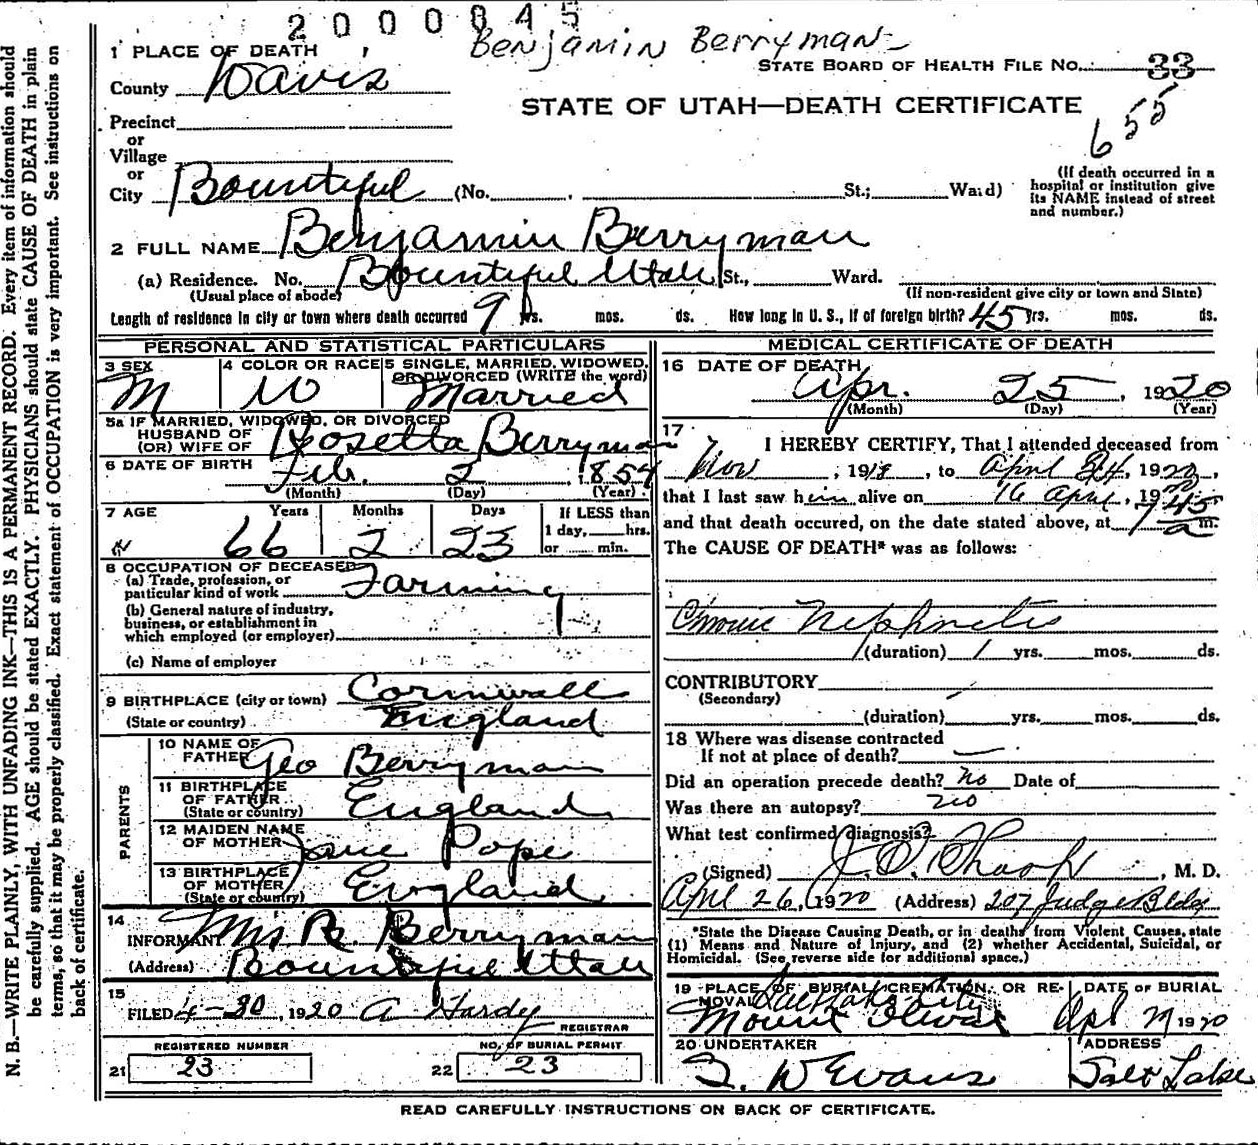 2000045
Benjamin Berryman
1 PLACE OF DEATH
STATE BOARD OF HEALTH FILE No. 33
County Davis
STATE OF UTAH—DEATH CERTIFICATE
655
Precinct
or
Village
or
City Bountiful (No. St.; Ward)
(If death occurred in a
hospital or institution give
its NAME instead of street
and number.)
2 FULL NAME Benjamin Berryman
(a) Residence. No. Bountiful Utah St., Ward.
(Usual place of abode) (If non-resident give city or town and State)
Length of residence in city or town where death occurred 9 yrs. mos. ds. How long in U. S., if of foreign birth? 45 yrs. mos. ds.
PERSONAL AND STATISTICAL PARTICULARS
3 SEX M
4 COLOR OR RACE W
5 SINGLE, MARRIED, WIDOWED,
OR DIVORCED (WRITE the word)
Married
5a IF MARRIED, WIDOWED, OR DIVORCED
HUSBAND OF
(OR) WIFE OF Rosetta Berryman
6 DATE OF BIRTH Feb. 2, 1854
(Month) (Day) (Year)
7 AGE Years Months Days If LESS than
1 day, hrs.
66 2 23 or min.
8 OCCUPATION OF DECEASED
(a) Trade, profession, or
particular kind of work Farming
(b) General nature of industry,
business, or establishment in
which employed (or employer)
(c) Name of employer
9 BIRTHPLACE (city or town) Cornwall
(State or country) England
PARENTS
10 NAME OF
FATHER Geo Berryman
11 BIRTHPLACE
OF FATHER
(State or country) England
12 MAIDEN NAME
OF MOTHER Jane Pope
13 BIRTHPLACE
OF MOTHER
(State or country) England
14
INFORMANT Mrs R. Berryman
(Address) Bountiful Utah
15
FILED 4-30, 1920 A Hardy
REGISTRAR
REGISTERED NUMBER
21 23
NO. OF BURIAL PERMIT
22 23
MEDICAL CERTIFICATE OF DEATH
16 DATE OF DEATH
Apr. 25, 1920
(Month) (Day) (Year)
17
I HEREBY CERTIFY, That I attended deceased from
Nov, 19, to April, 1920,
that I last saw him alive on 16 April, 1920
and that death occured, on the date stated above, at 7 45 a m.
The CAUSE OF DEATH* was as follows:
Chronic Nephritis
(duration) 1 yrs. mos. ds.
CONTRIBUTORY
(Secondary)
(duration) yrs. mos. ds.
18 Where was disease contracted
If not at place of death?
Did an operation precede death? no Date of
Was there an autopsy? no
What test confirmed diagnosis?
(Signed) J. E. Tharp, M. D.
April 26, 1920 (Address) 207 Judge Bldg
*State the Disease Causing Death, or in deaths from Violent Causes, state
(1) Means and Nature of Injury, and (2) whether Accidental, Suicidal, or
Homicidal. (See reverse side for additional space.)
19 PLACE OF BURIAL, CREMATION, OR RE-
MOVAL Salt Lake City
Mount Olivet
DATE OF BURIAL
Apl 29 1920
20 UNDERTAKER
S. W Evans
ADDRESS
Salt Lake
READ CAREFULLY INSTRUCTIONS ON BACK OF CERTIFICATE.
N. B.—WRITE PLAINLY, WITH UNFADING INK—THIS IS A PERMANENT RECORD. Every item of information should
be carefully supplied. AGE should be stated EXACTLY. PHYSICIANS should state CAUSE OF DEATH in plain
terms, so that it may be properly classified. Exact statement of OCCUPATION is very important. See instructions on
back of certificate.